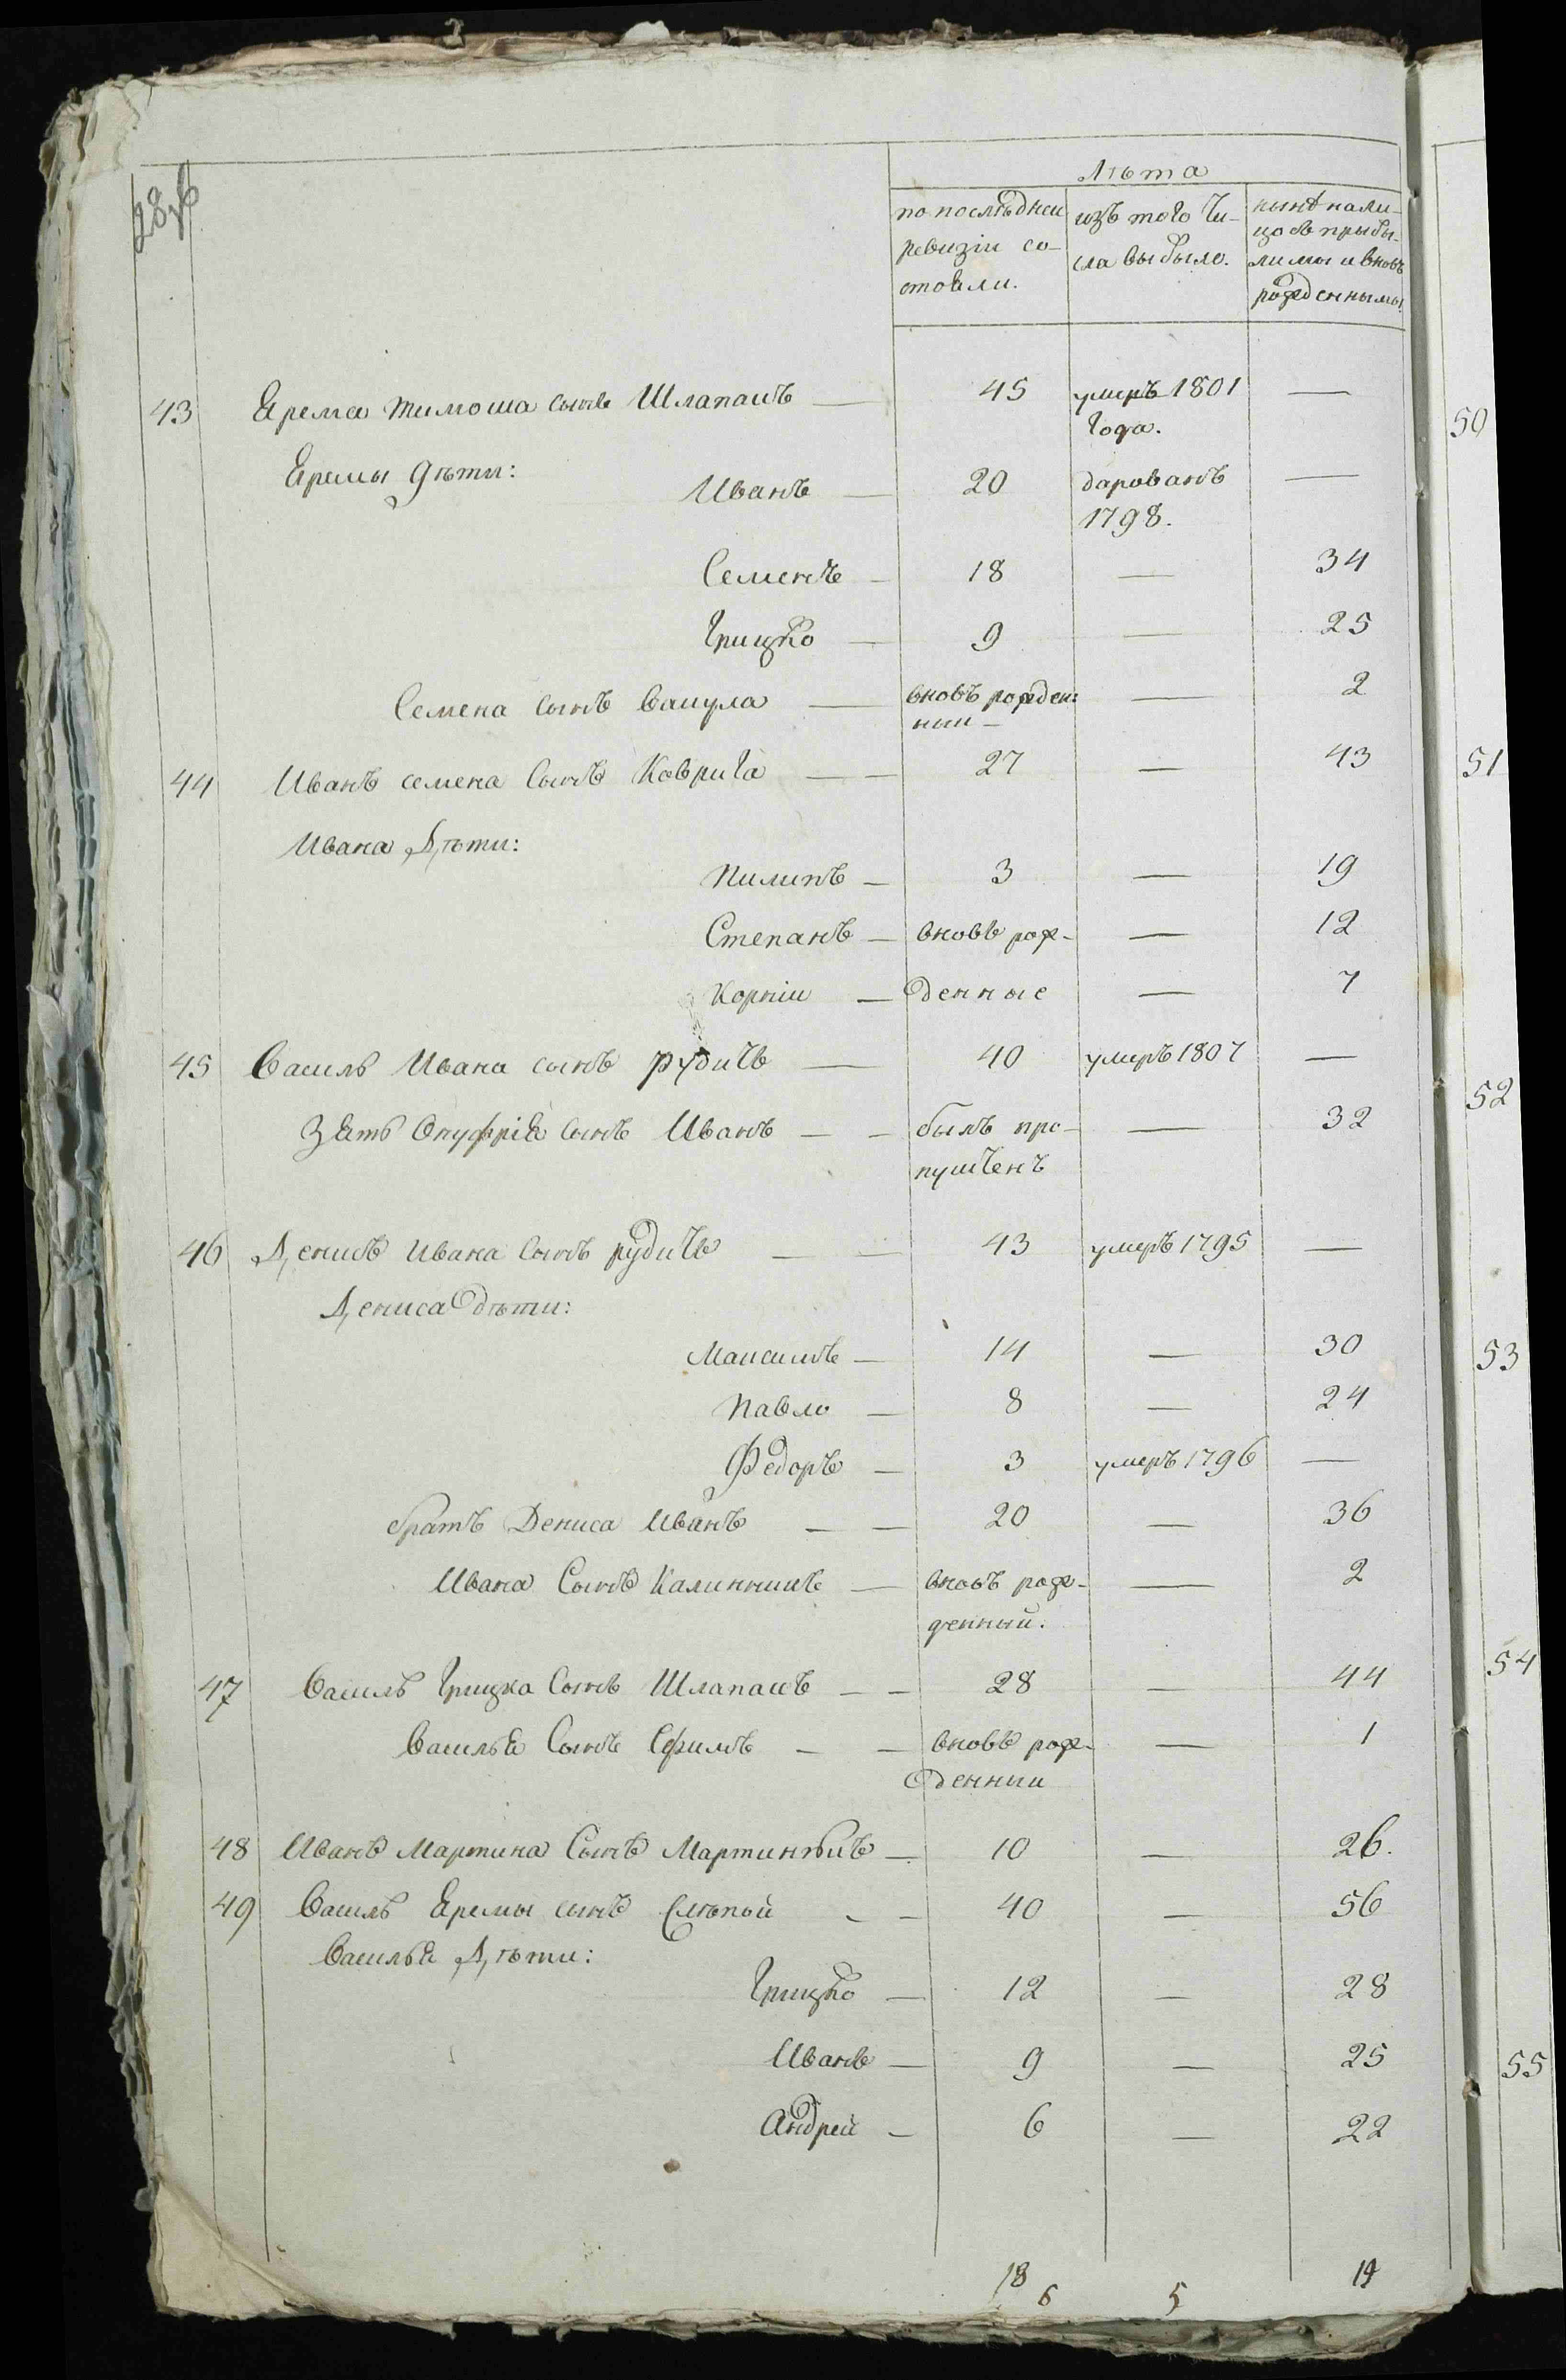 28
Лѣта
по послѣдней ревизіи состояли.
изъ того числа выбыло.
нынѣ налицо съ прыбылимы и вновь рожденнымы
43 Ерема Тимоша сынъ Шлапакъ — 45 умеръ 1801 года. —
Еремы дѣти:
Иванъ — 20 дарованъ 1798. —
Семенъ — 18 — 34
Грицко — 9 — 25
Семена сынъ Вакула — вновь рожденный — — 2
44 Иванъ Семена сынъ Коврига — — 27 — 43
Ивана Дѣти:
Пилипъ — 3 — 19
Степанъ — вновь рож- — 12
Корній — денные — 7
45 Василь Ивана сынъ Рудичъ — 40 умеръ 1807 —
Зять Онуфрія сынъ Иванъ — — былъ пропушченъ — 32
46 Денисъ Ивана сынъ рудичъ — — 43 умеръ 1795 —
Дениса дѣти:
Максимъ — 14 — 30
Павло — 8 — 24
Федоръ — 3 умеръ 1796 —
братъ Дениса Иванъ — — 20 — 36
Ивана Сынъ Калинникъ — вновь рожденный. — 2
47 Василь Грицка Сынъ Шлапакъ — — 28 — 44
Василья Сынъ Ефимъ — — вновь рожденний — 1
48 Иванъ Мартина Сынъ Мартинѣкъ — 10 — 26.
49 Василь Еремы сынъ Слѣпой — — 40 — 56
Василья Дѣти:
Грицко — 12 — 28
Иванъ — 9 — 25
Андрей — 6 — 22
18 6 5 19
50
51
52
53
54
55